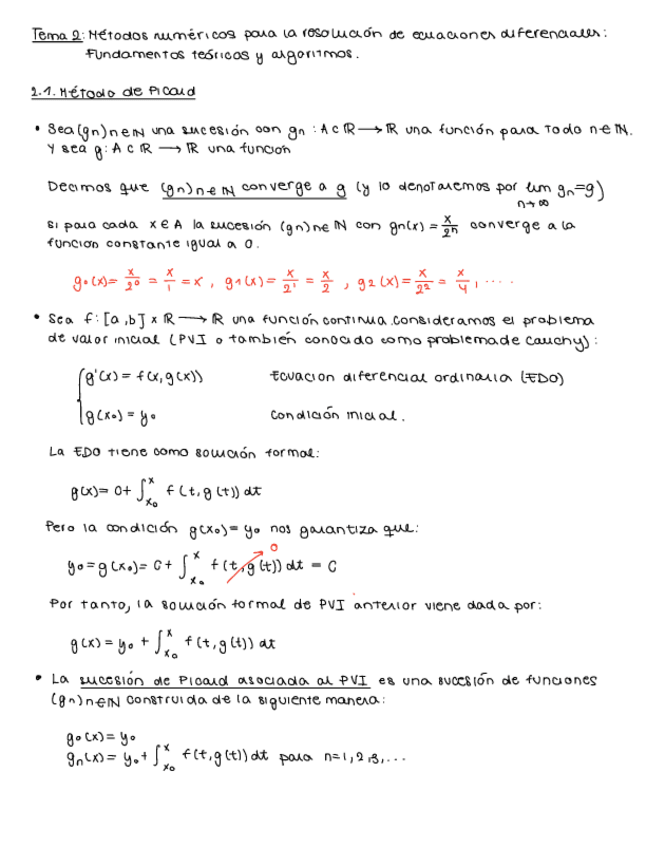 Tema 2: Métodos numéricos para la resolución de ecuaciones diferenciales:
Fundamentos teóricos y algoritmos.
2.1. Método de Picard
• Sea (gn)n∈ℕ una sucesión con gn : A ⊂ ℝ → ℝ una función para todo n ∈ ℕ.
Y sea g: A ⊂ ℝ → ℝ una función
Decimos que (gn)n∈ℕ converge a g (y lo denotaremos por lim n→∞ gn = g)
si para cada x ∈ A la sucesión (gn)n∈ℕ con gn(x) = x/2^n converge a la
función constante igual a 0.
g0(x) = x/2^0 = x/1 = x , g1(x) = x/2^1 = x/2 , g2(x) = x/2^2 = x/4 , ....
• Sea f: [a,b] x ℝ → ℝ una función continua. consideramos el problema
de valor inicial (PVI o también conocido como problema de Cauchy):
g'(x) = f(x, g(x)) Ecuación diferencial ordinaria (EDO)
g(x0) = y0 condición inicial.
La EDO tiene como solución formal:
g(x) = 0 + ∫_{x0}^{x} f(t, g(t)) dt
Pero la condición g(x0) = y0 nos garantiza que:
y0 = g(x0) = C + ∫_{x0}^{x} f(t, g(t)) dt = C
0
Por tanto, la solución formal de PVI anterior viene dada por:
g(x) = y0 + ∫_{x0}^{x} f(t, g(t)) dt
• La sucesión de Picard asociada al PVI es una sucesión de funciones
(gn)n∈ℕ construida de la siguiente manera:
g0(x) = y0
gn(x) = y0 + ∫_{x0}^{x} f(t, g(t)) dt para n=1,2,3,...